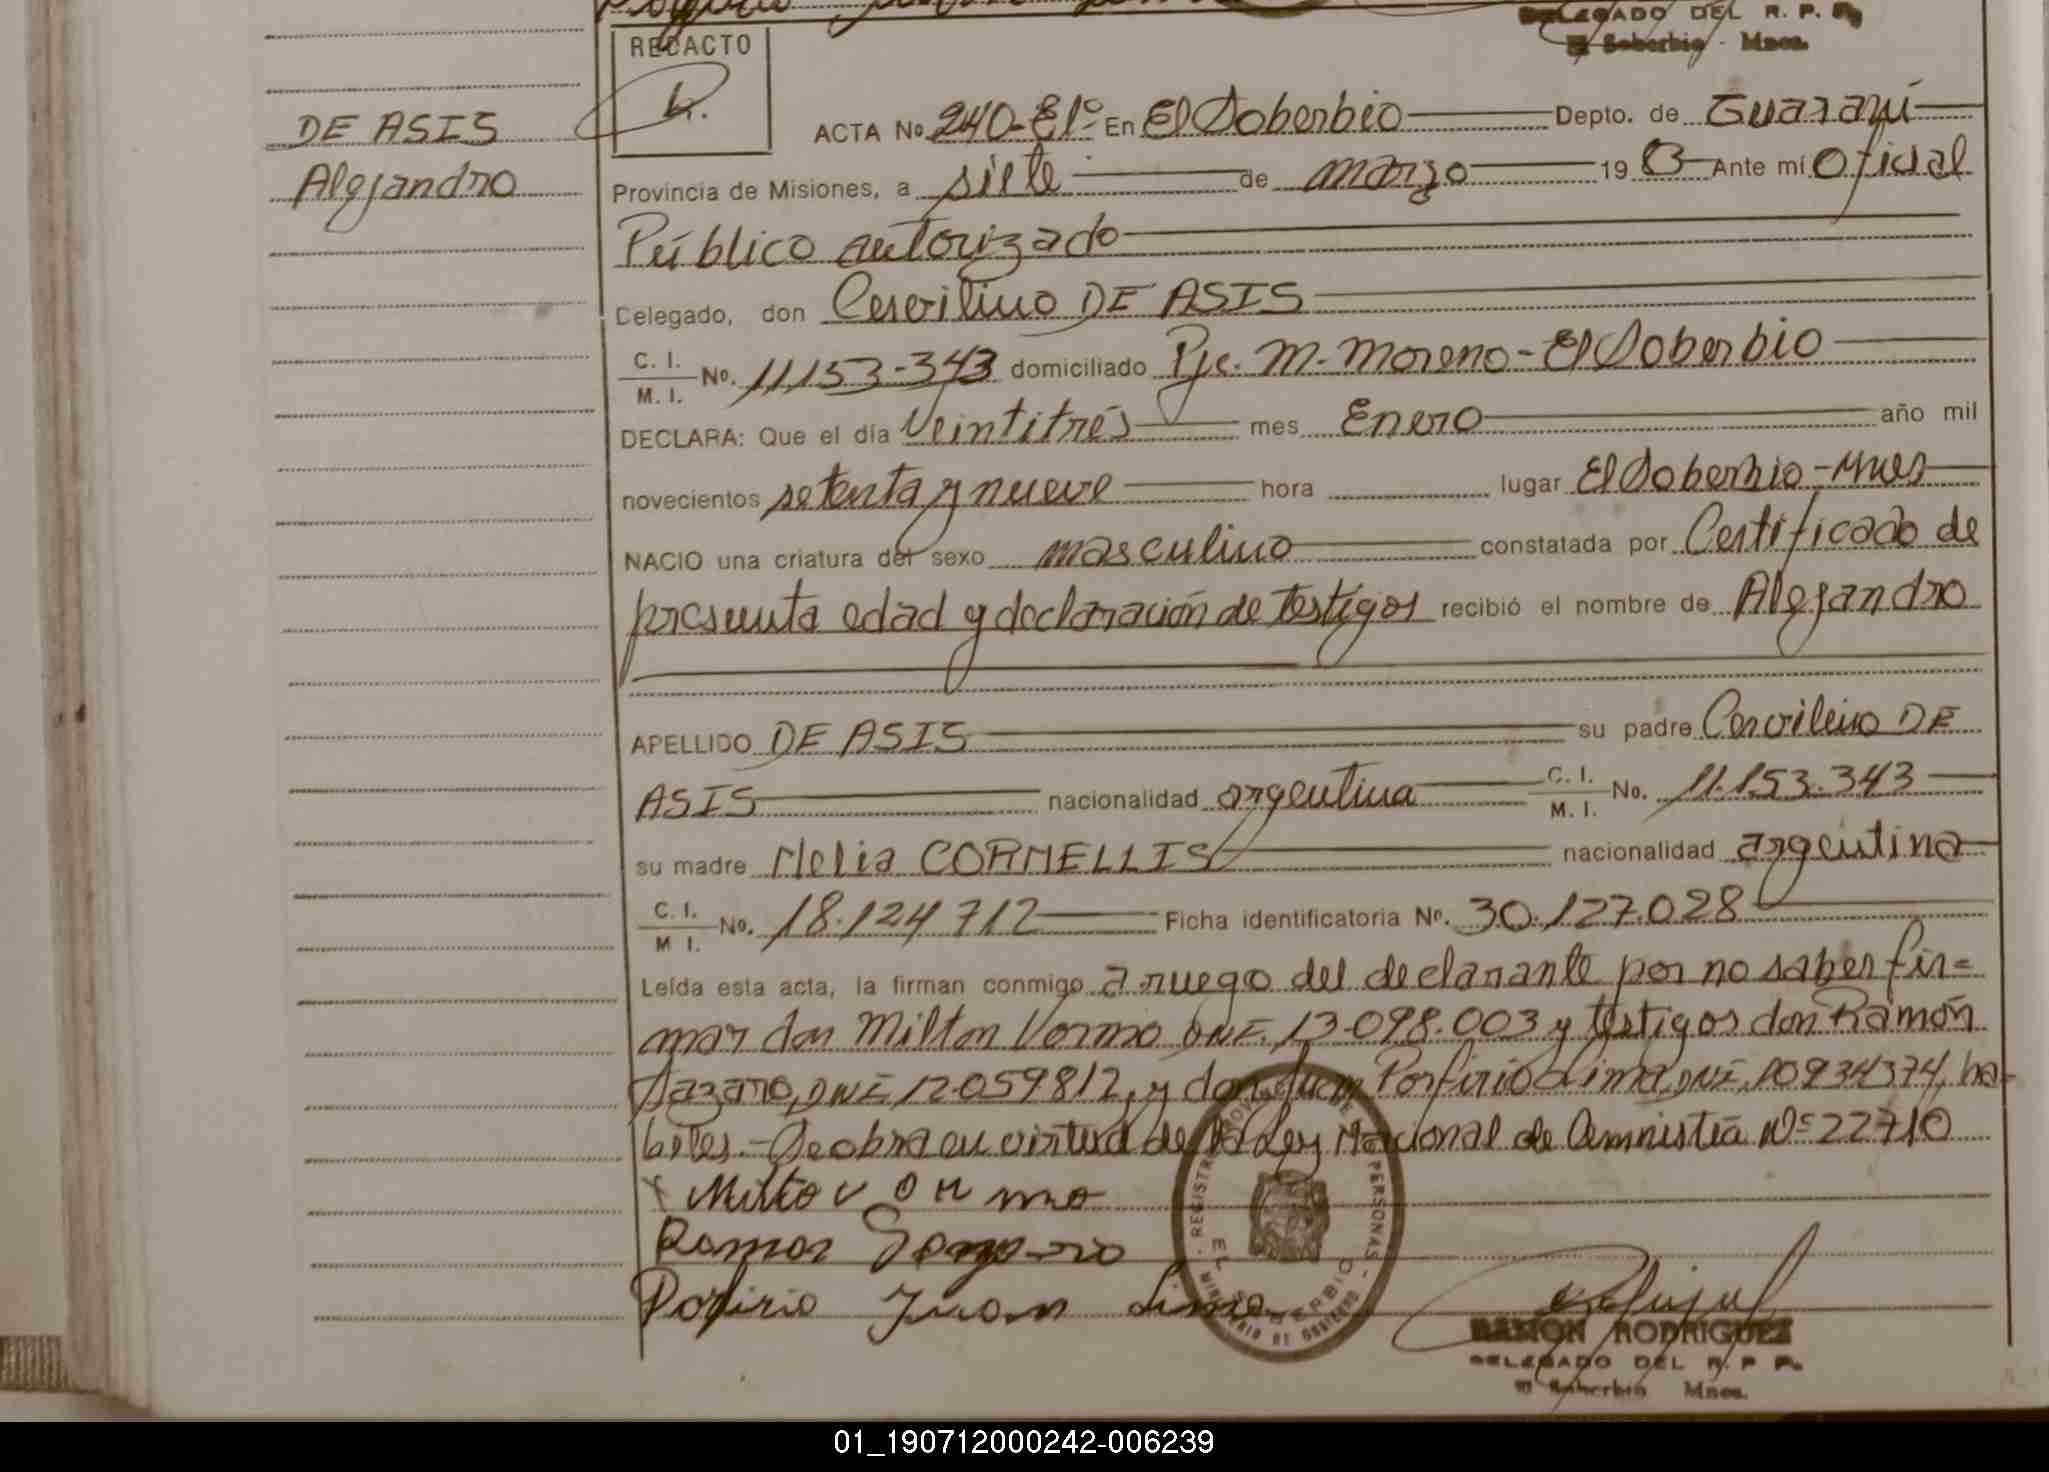 DELEGADO DEL R. P. P.
El Soberbio - Mnes.
REDACTO
DE ASIS
Alejandro
ACTA No. 240-Elº En El Soberbio Depto. de Guaraní
Provincia de Misiones, a siete de marzo 19 83 Ante mí Oficial
Público autorizado
Delegado, don Cervilino DE ASIS
C. I.
M. I. No. 11153-343 domiciliado Pje. M. Moreno - El Soberbio
DECLARA: Que el día Veintitrés mes Enero año mil
novecientos setenta y nueve hora lugar El Soberbio - Mnes
NACIO una criatura del sexo masculino constatada por Certificado de
presunta edad y declaración de testigos recibió el nombre de Alejandro
APELLIDO DE ASIS su padre Cervilino DE
ASIS nacionalidad argentina C. I. M. I. No. 11.153.343
su madre Nelia CORNELLIS nacionalidad argentina
C. I. M I. No. 18.124 712 Ficha identificatoria No. 30.127.028
Leída esta acta, la firman conmigo a ruego del declarante por no saber fir=
mar don Milton Vormo DNI. 13.098.003 y testigos don Ramón
DNI 12.059812, y don Juan Porfirio Lima, DNI. 10934374, ha-
biles.- Se obra en virtud de la Ley Nacional de Amnistía Nº 22710
x Milto vormo
Ramon
Porfirio Juan Lima
REGISTRO PROVINCIAL DE PERSONAS
EL SOBERBIO
MINISTERIO DE GOBIERNO
RAMON RODRIGUEZ
DELEGADO DEL R. P. P.
El Soberbio Mnes.
01_190712000242-006239